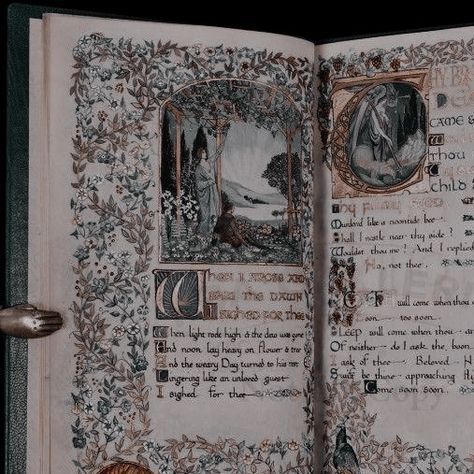 When I arose and
saw the dawn
I sighed for thee
When light rode high & the dew was gone
And noon lay heavy on flower & tree
And the weary Day turned to his rest
Lingering like an unloved guest
I sighed for thee
Thy Br
De
came &
thou
child
Thy filmy eyed
Murmured like a noontide bee
Shall I nestle near thy side?
Wouldst thou me? And I replied
No, not thee.
will come when thou
soon too soon
Sleep will come when thou a
Of neither do I ask the boon
I ask of thee Beloved N
Swift be thine approaching fli
Come soon soon